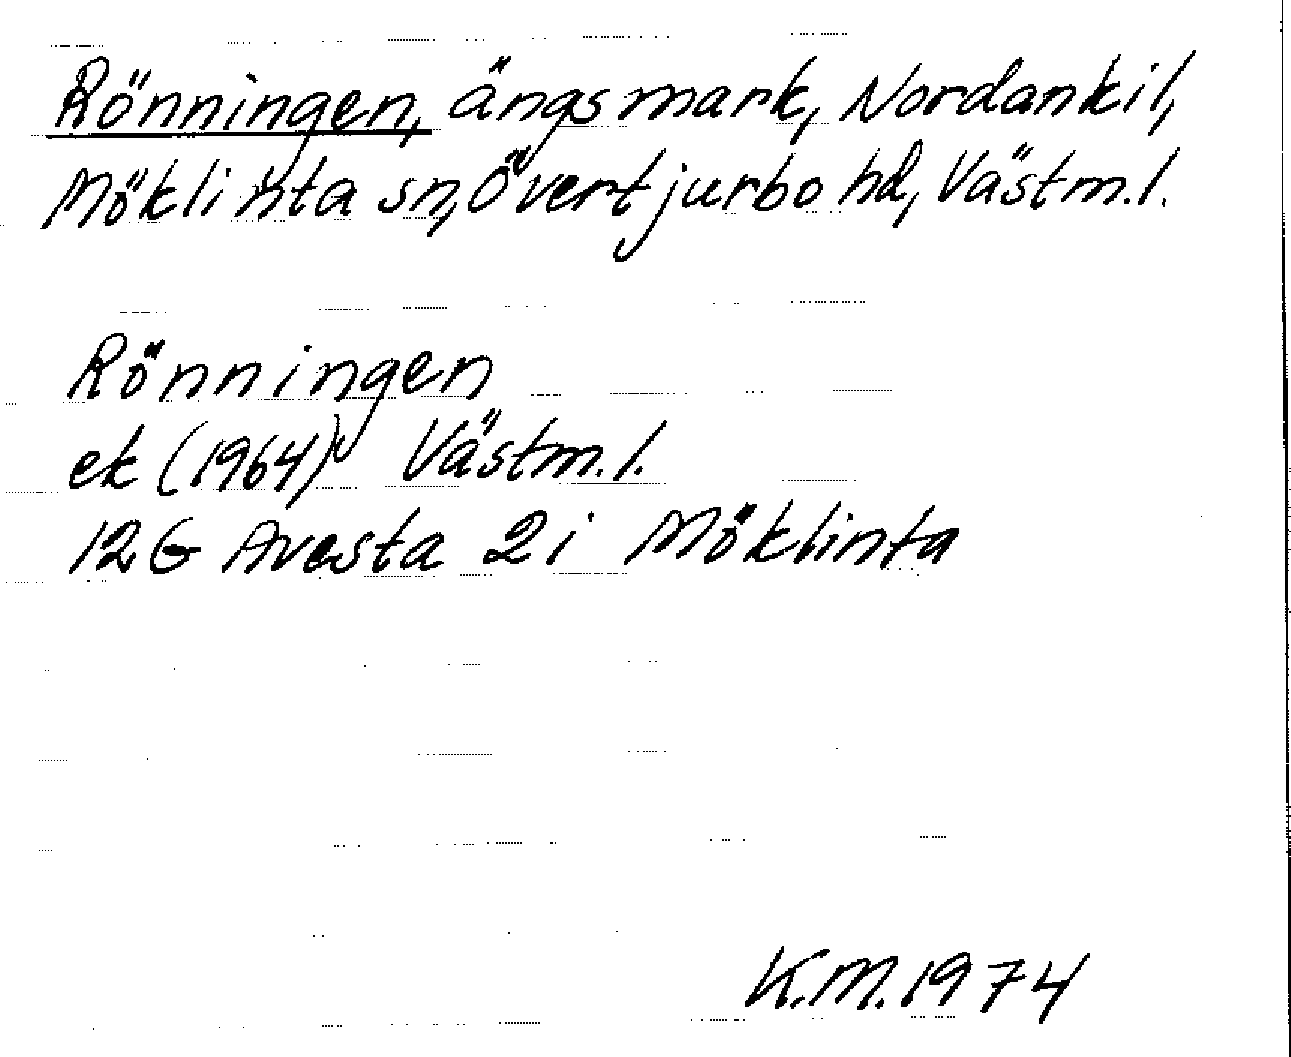 Rönningen, ängsmark, Nordankil,
Möklinta sn, Övertjurbo hd, Västm.l.
Rönningen
ek (1964) Västm.l.
12G Avesta 2i Möklinta
K.M.1974